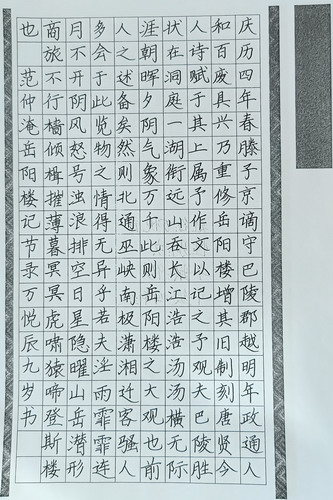 庆历四年春滕子京谪守巴陵郡越明年政通人
和百废具兴乃重修岳阳楼增其旧制刻唐贤今
人诗赋于其上属予作文以记之予观夫巴陵胜
状在洞庭一湖衔远山吞长江浩浩汤汤横无际
涯朝晖夕阴气象万千此则岳阳楼之大观也前
人之述备矣然则北通巫峡南极潇湘迁客骚人
多会于此览物之情得无异乎若夫淫雨霏霏连
月不开阴风怒号浊浪排空日星隐曜山岳潜形
商旅不行樯倾楫摧薄暮冥冥虎啸猿啼登斯楼
也 范仲淹岳阳楼记节录万悦辰九岁书